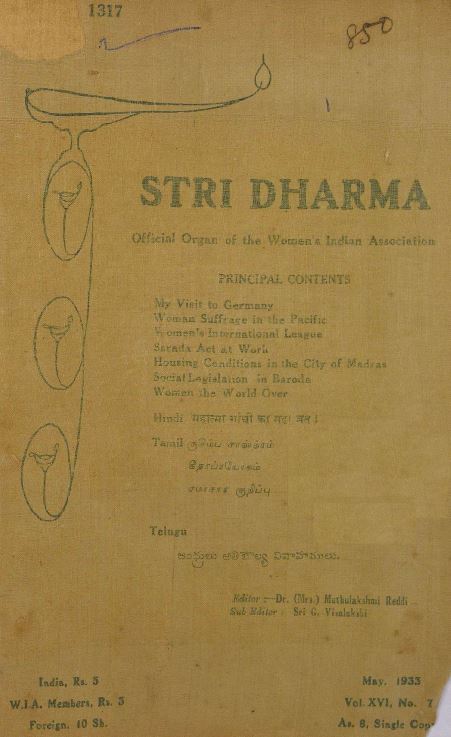 1317
850
STRI DHARMA
Official Organ of the Women's Indian Association
PRINCIPAL CONTENTS
My Visit to Germany
Woman Suffrage in the Pacific
Women's International League
Sarada Act at Work
Housing Conditions in the City of Madras
Social Legislation in Baroda
Women the World Over
Hindi महात्मा गांधी का
Tamil குடும்ப சாஸ்திரம்
சமாசார குறிப்பு
Telugu
Editor :— Dr. (Mrs.) Muthulakshmi Reddi
Sub Editor : Sri G. Visalakshi
India, Rs. 5
W.I.A. Members, Rs. 3
Foreign. 10 Sh.
May. 1933
Vol. XVI, No. 7
As. 8, Single Cop